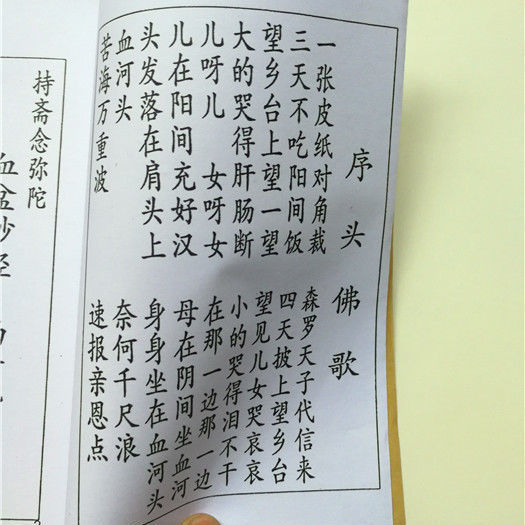 序头 佛歌
一张皮纸对角裁 森罗天子代信来
三天不吃阳间饭 四天披上望乡台
望乡台上望一望 望见儿女哭哀哀
大的哭得肝肠断 小的哭得泪不干
儿呀儿 女呀女 在那一边那一边
儿在阳间充好汉 母在阴间坐血河
头发落在肩头上 身身坐在血河头
血河头 奈何千尺浪
苦海万重波 速报亲恩点
持斋念弥陀
血盆妙经